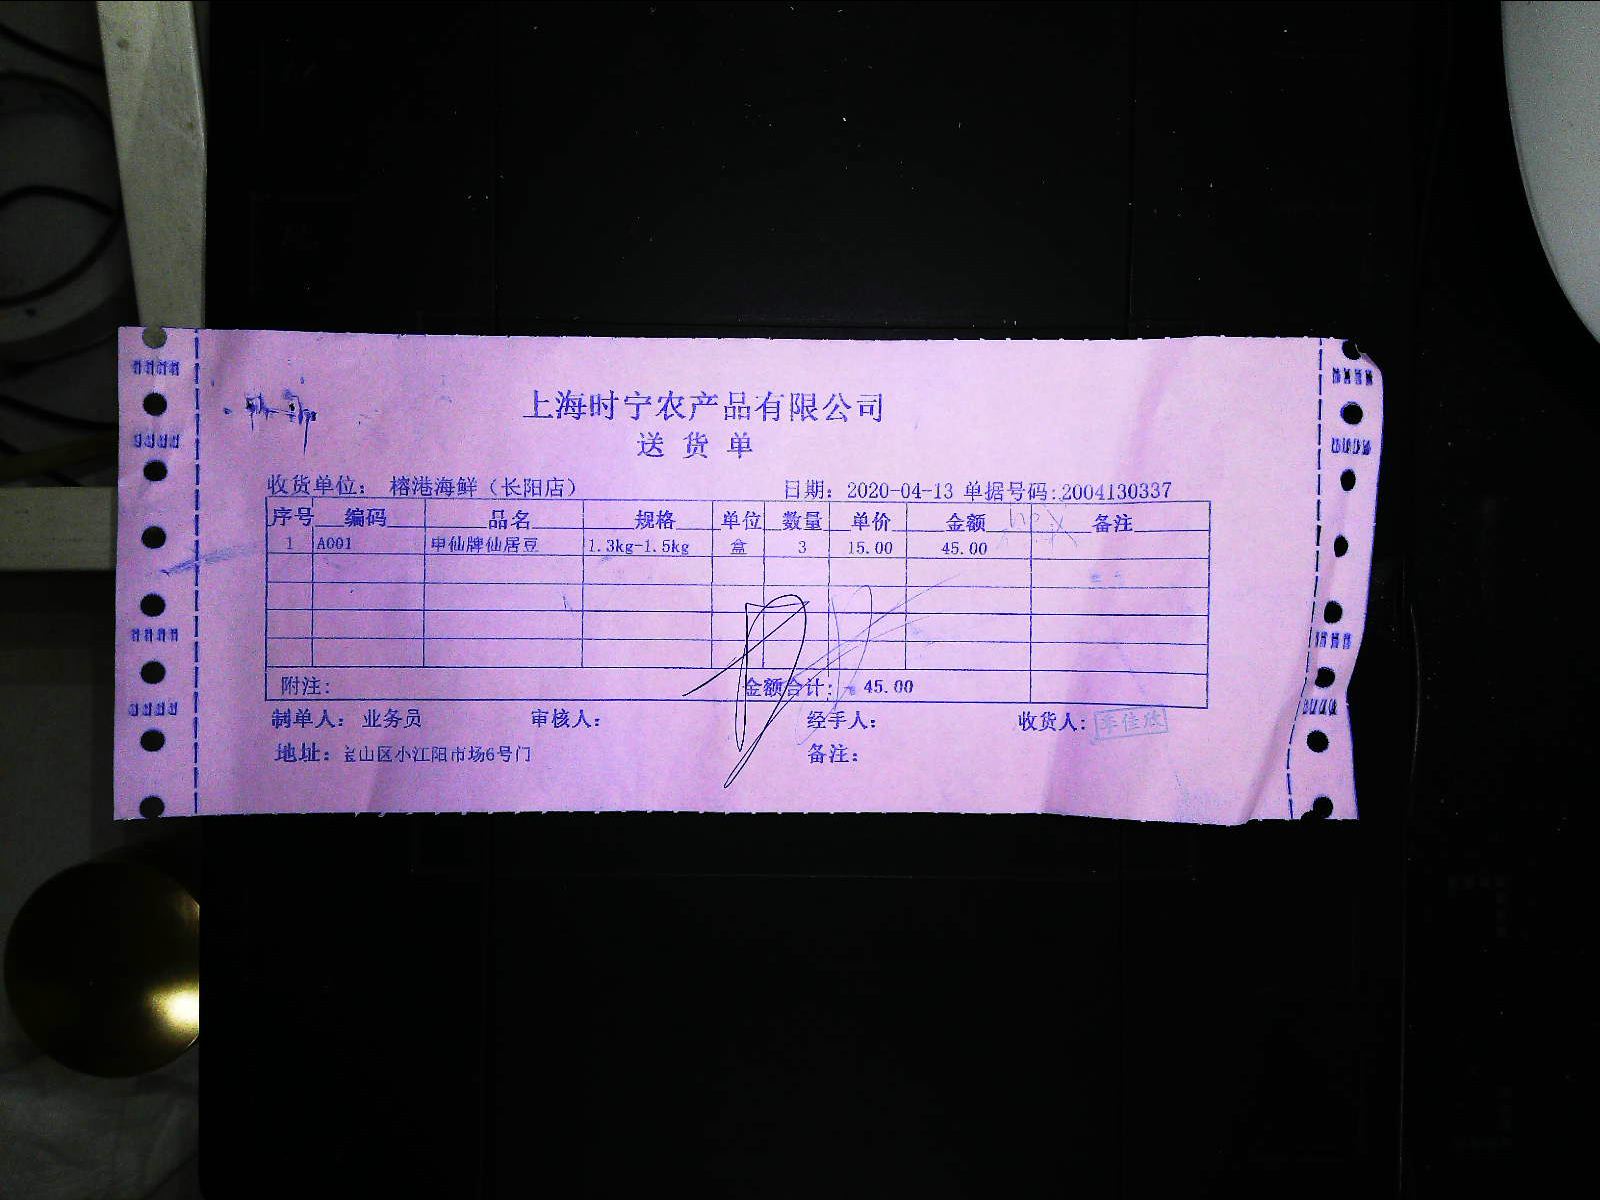 上海时宁农产品有限公司
送货单
收货单位： 榕港海鲜（长阳店） 日期：2020-04-13 单据号码:2004130337
序号 编码 品名 规格 单位 数量 单价 金额 备注
1 A001 申仙牌仙居豆 1.3kg-1.5kg 盒 3 15.00 45.00
附注： 金额合计: 45.00
制单人： 业务员 审核人： 经手人： 收货人: 李佳欣
地址：宝山区小江阳市场6号门 备注：